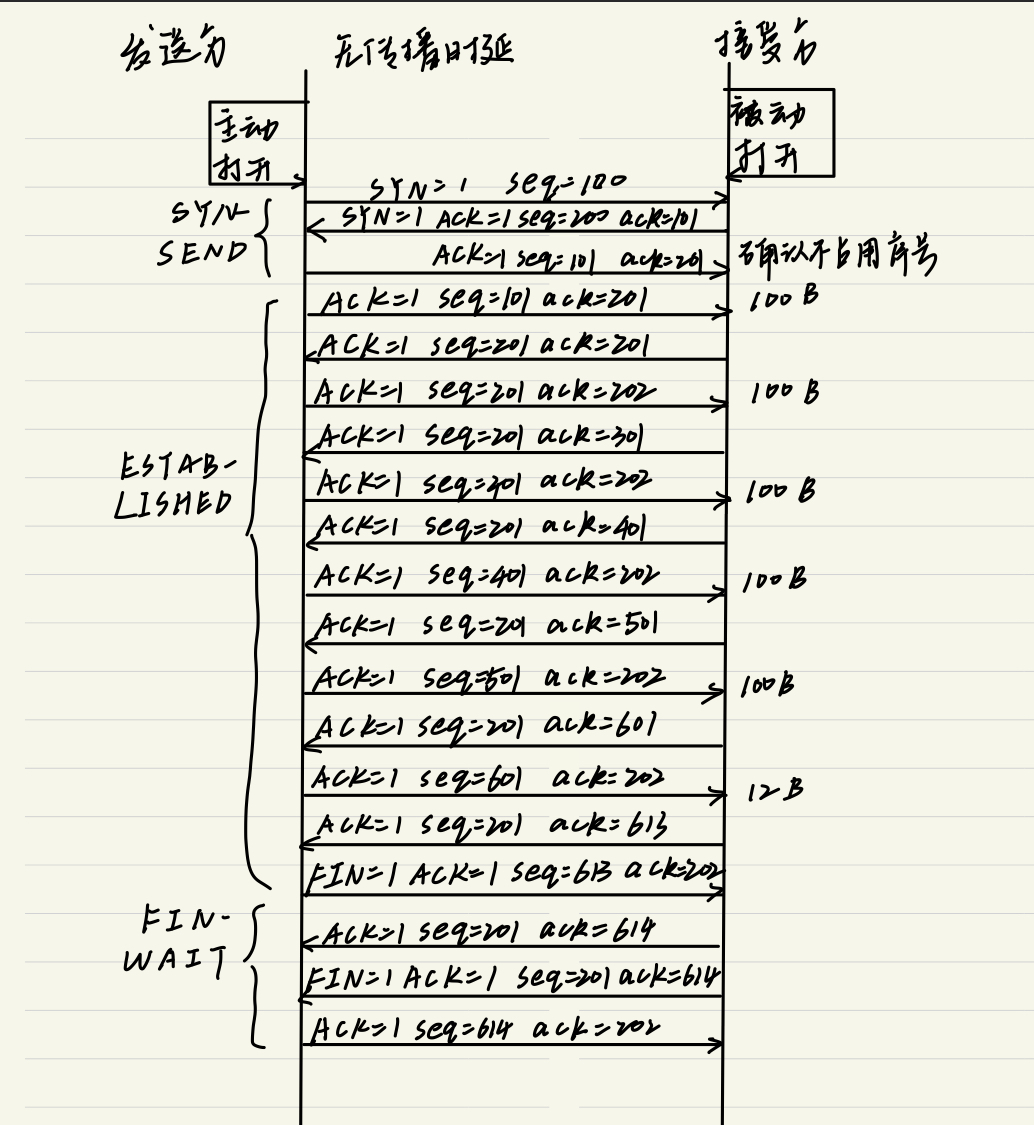 发送方 无传播时延 接受方
主动
打开
被动
打开
SYN=1 seq=100
SYN=1 ACK=1 seq=200 ack=101
ACK=1 seq=101 ack=201 确认不占用序号
SYN-
SEND
ACK=1 seq=101 ack=201 100B
ACK=1 seq=201 ack=201
ACK=1 seq=201 ack=202 100B
ACK=1 seq=201 ack=301
ACK=1 seq=301 ack=202 100B
ACK=1 seq=201 ack=401
ACK=1 seq=401 ack=202 100B
ACK=1 seq=201 ack=501
ACK=1 seq=501 ack=202 100B
ACK=1 seq=201 ack=601
ACK=1 seq=601 ack=202 12B
ACK=1 seq=201 ack=613
FIN=1 ACK=1 seq=613 ack=202
ESTAB-
LISHED
ACK=1 seq=201 ack=614
FIN=1 ACK=1 seq=201 ack=614
ACK=1 seq=614 ack=202
FIN-
WAIT